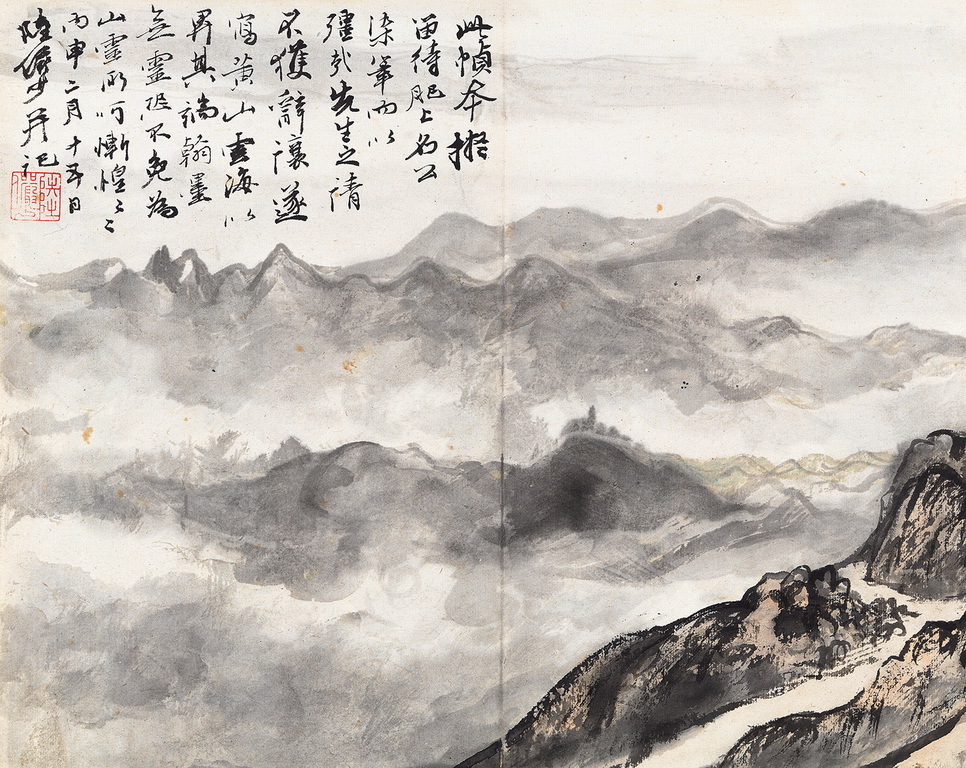 此幀本擬
留待肥上名公
染筆而以
先生之請
不獲辭讓遂
寫黃山雲海以
畀其端翰墨
無靈恐不免為
山靈所呵慚惶々々
丙申二月十五日
陸儼少并記